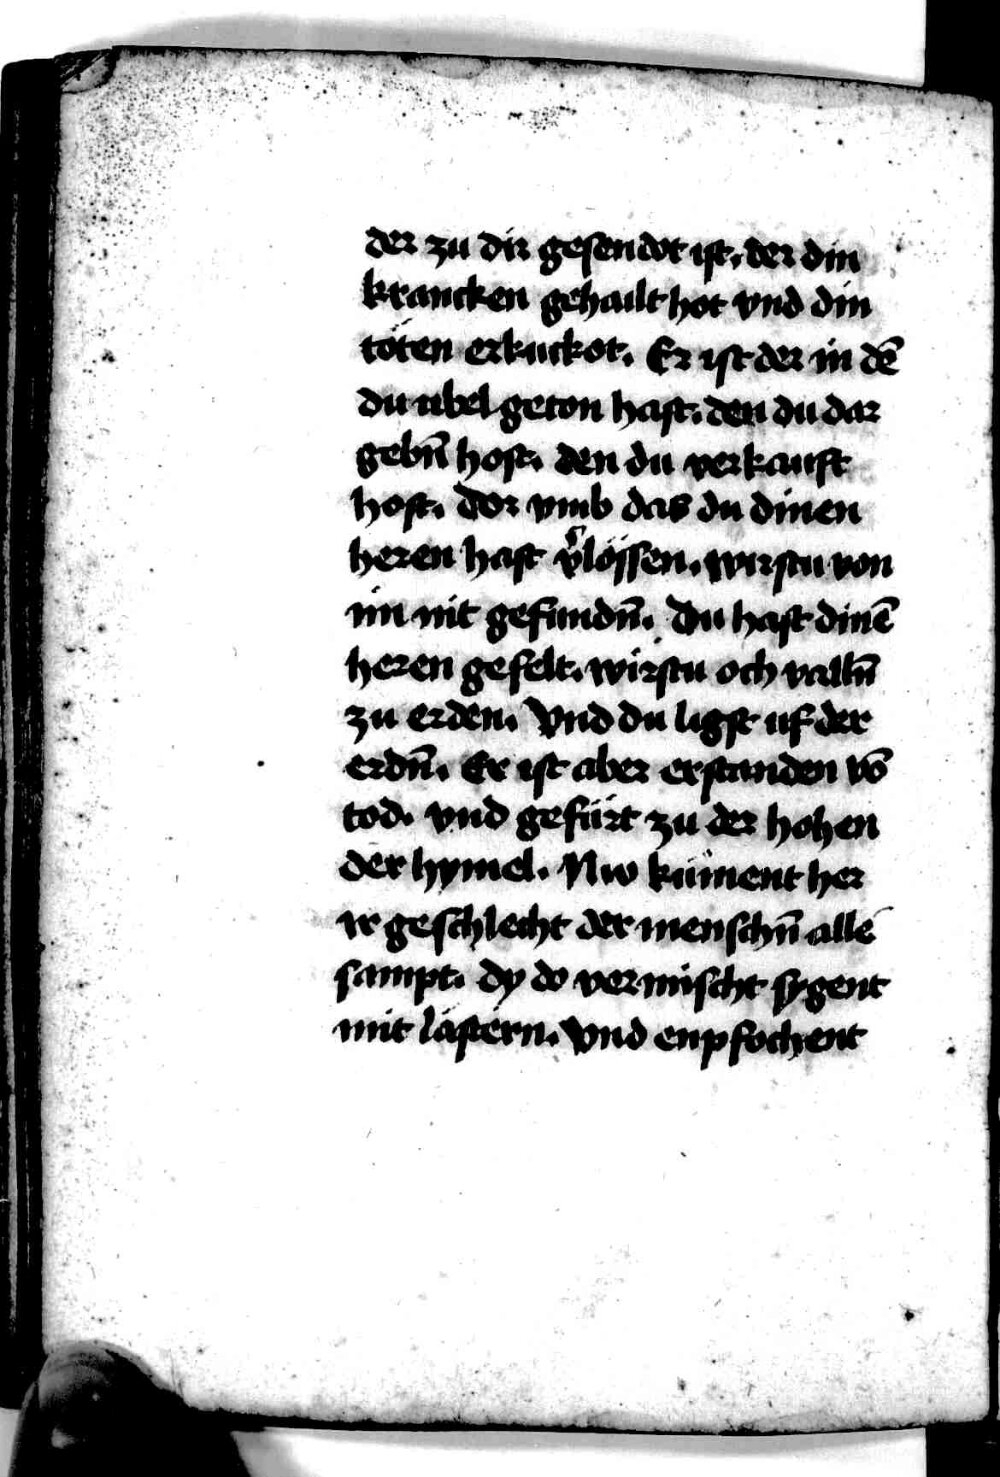 der zu dir gesendot ist. der din
krancken gehailt hot vnd din
töten erkuckot. Er ist der in dē
du ubel geton hast. den du dar
gebn̄ host. den du verkauft
host. Dor vmb das du dinen
heren hast v̄lössen. wirstu von
im nit gefundn̄. Du hast dinē
heren gefelt. wirstu och valln̄
zu erden. Vnd du ligst uf der
erdn̄. Er ist aber erstanden vō
tod. vnd gefürt zu der hohen
der hymel. Nw kūment her
ir geschlecht der menschn̄ alle
sampt. dy do vermischt sygent
mit lästern. Vnd enpfochent